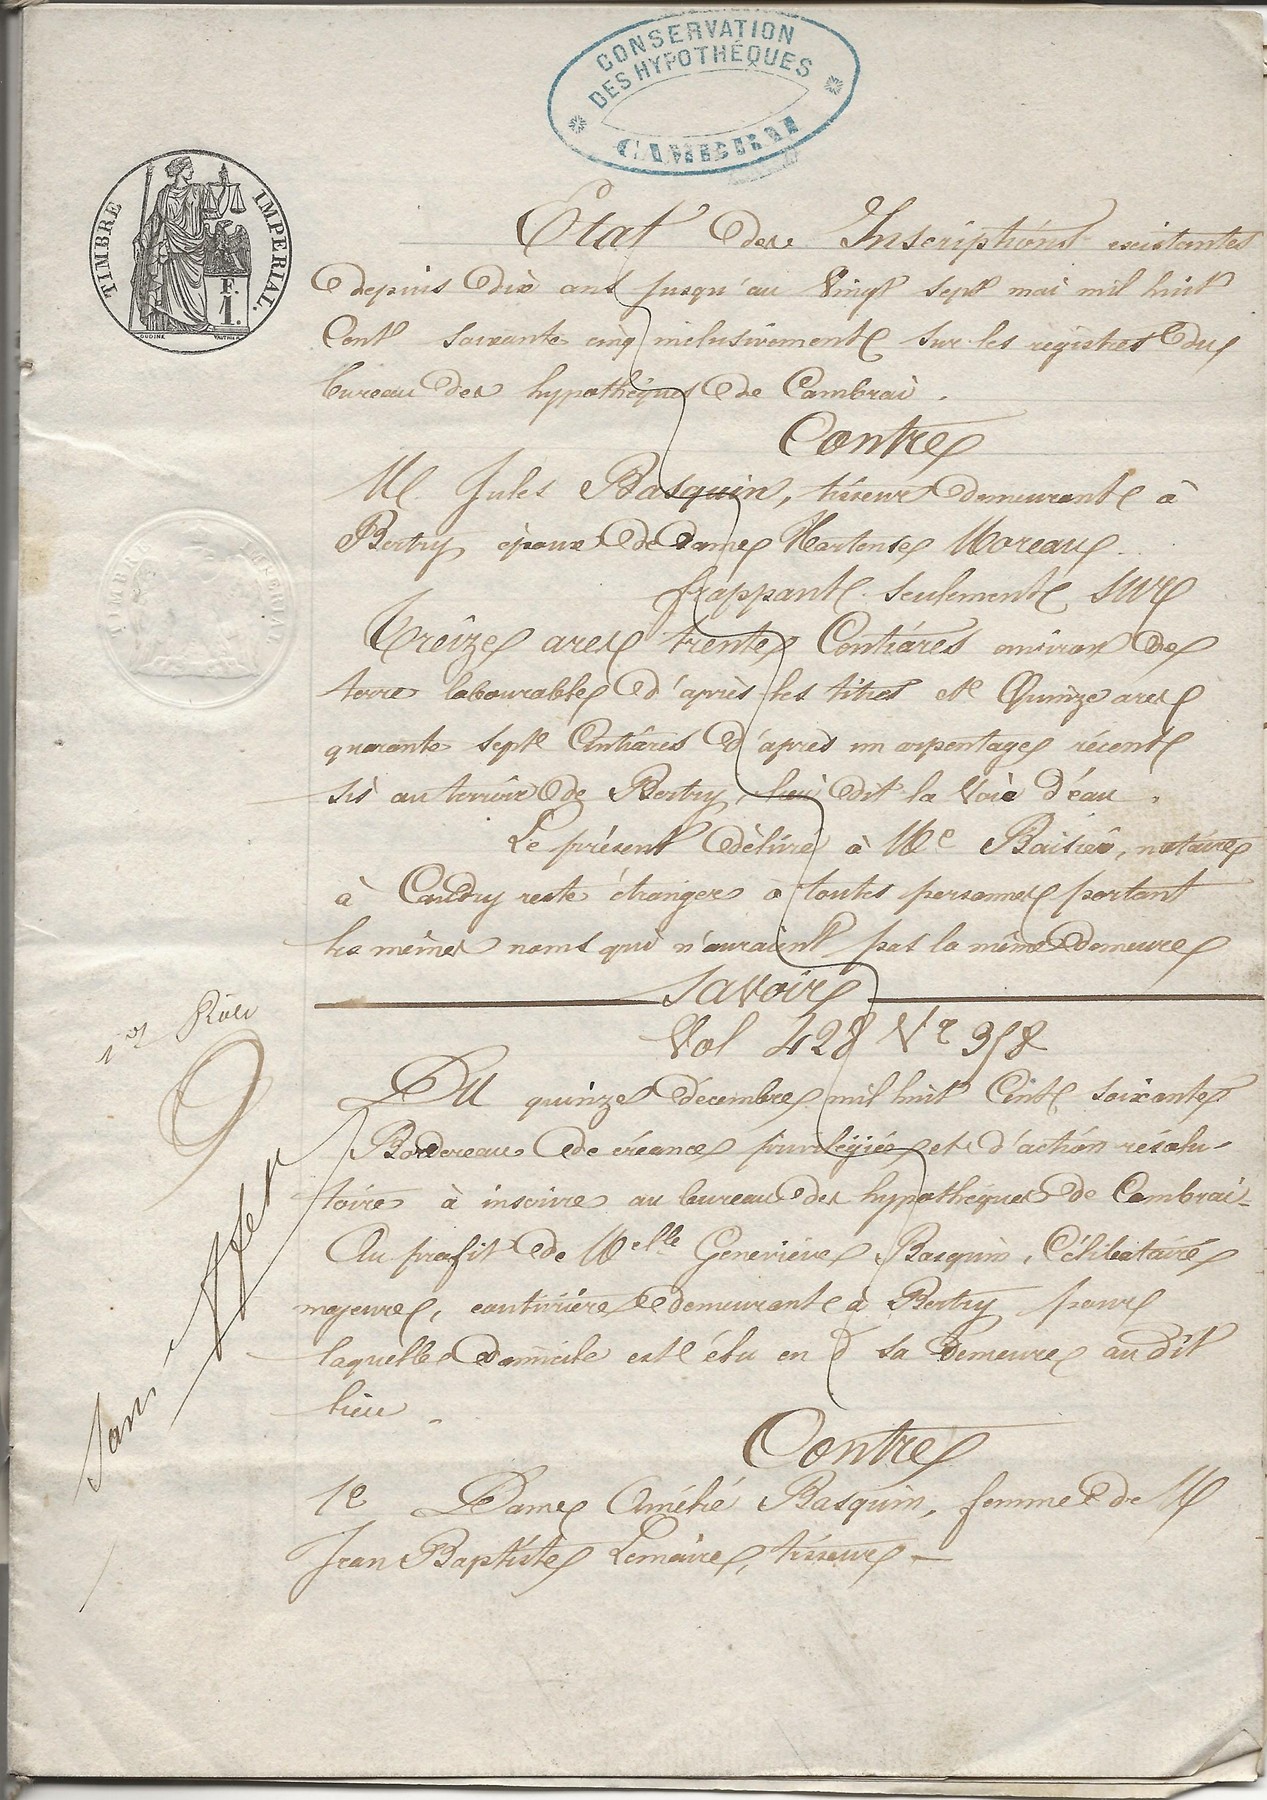 CONSERVATION
DES HYPOTHÉQUES
CAMBRAI
TIMBRE IMPERIAL.
F.
1.
Etat des Inscriptions existantes
depuis dix ans jusqu'au Vingt sept mai mil huit
Cent soixante cinq inclusivement sur les registres du
bureau des hypothèques de Cambrai.
Contre
M. Jules Basquin, tisseur demeurant à
Bertry, époux de dame Hortense Moreau.
frappant seulement sur
Treize ares trente Centiares environ de
terre labourable d'après les titres et Quinze ares
quarante sept Centiares d'après un arpentage récent
sis au terroir de Bertry, lieu dit la Voie d'eau.
Le présent délivré à Me Baisiéo, notaire
à Caudry reste étranger à toutes personnes portant
les mêmes noms qui n'auraient pas la même demeure
Savoir
Vol 428 No 358
1er Rôle
Du quinze décembre mil huit Cent soixante
Bordereau de créance privilégiée et d'action résolu-
toire à inscrire au bureau des hypothèques de Cambrai-
Au profit de Melle Geneviève Basquin, Célibataire
majeure, couturière demeurant à Bertry pour
laquelle domicile est élu en sa demeure au dit
lieu.
Contre
1e Dame Amélié Basquin, femme de M
Jean Baptiste Lemaire, tisseur —